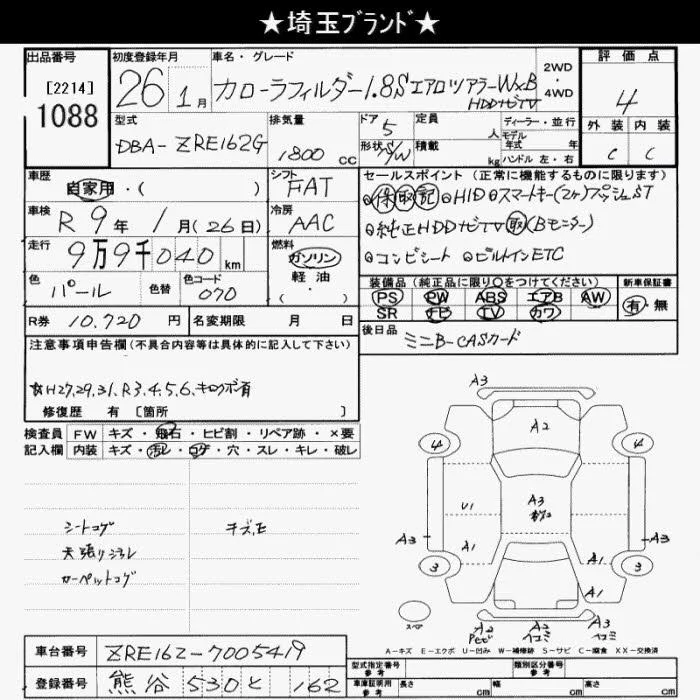 ★埼玉ブランド★
出品番号 [2214] 1088
初度登録年月 26 1月
車名・グレード カローラフィルダー1.8S エアロツアラーW×B HDDナビTV
2WD ・ 4WD
評価点 4
外装 内装
C C
型式 DBA-ZRE162G
排気量 1800 cc
ドア 5
形状 S/W
定員 人
積載 kg
ディーラー・並行
モデル年式 年式
ハンドル 左・右
車歴 自家用・( )
シフト FAT
車検 R 9年 1月(26日)
冷房 AAC
走行 9万9千040 km
燃料 ガソリン ・ 軽油 ・ ( )
色 パール 色替 色コード 070
R券 10.720 円 名変期限 月 日
セールスポイント (正常に機能するものに限ります)
◎保取記 ◎HID ◎スマートキー(2ケ)プッシュST
◎純正HDDナビTV取(Bモニター)
◎コンビシート ◎ビルトインETC
装備品 (純正品に限り○をつけてください) 新車保証書
PS PW ABS エアB AW 有・無
SR ナビ TV カワ
後日品 ミニB-CASカード
注意事項申告欄(不具合内容等は具体的に記入して下さい)
H27,29,31、R3、4、5、6、キロクボ有
修復歴 有 [箇所 ]
検査員 FW キズ・飛石・ヒビ割・リペア跡・×要
記入欄 内装 キズ・汚レ・コゲ・穴・スレ・キレ・破レ
シートコゲ キズ、E
天張リ汚レ
カーペットコゲ
A3
A2
4 4
U1 A3
A3 A3
A1 A1
3 3
A1
スペア
A2 A2 A3
コミ コミ
A-キズ E-エクボ U-凹み W-補修跡 S-サビ C-腐食 XX-交換済
車台番号 ZRE162-7005419
登録番号 熊谷 530 と 162
型式指定番号 参考 類別区分番号 参考
車庫証明用 参考 長さ cm 幅 cm 高さ cm